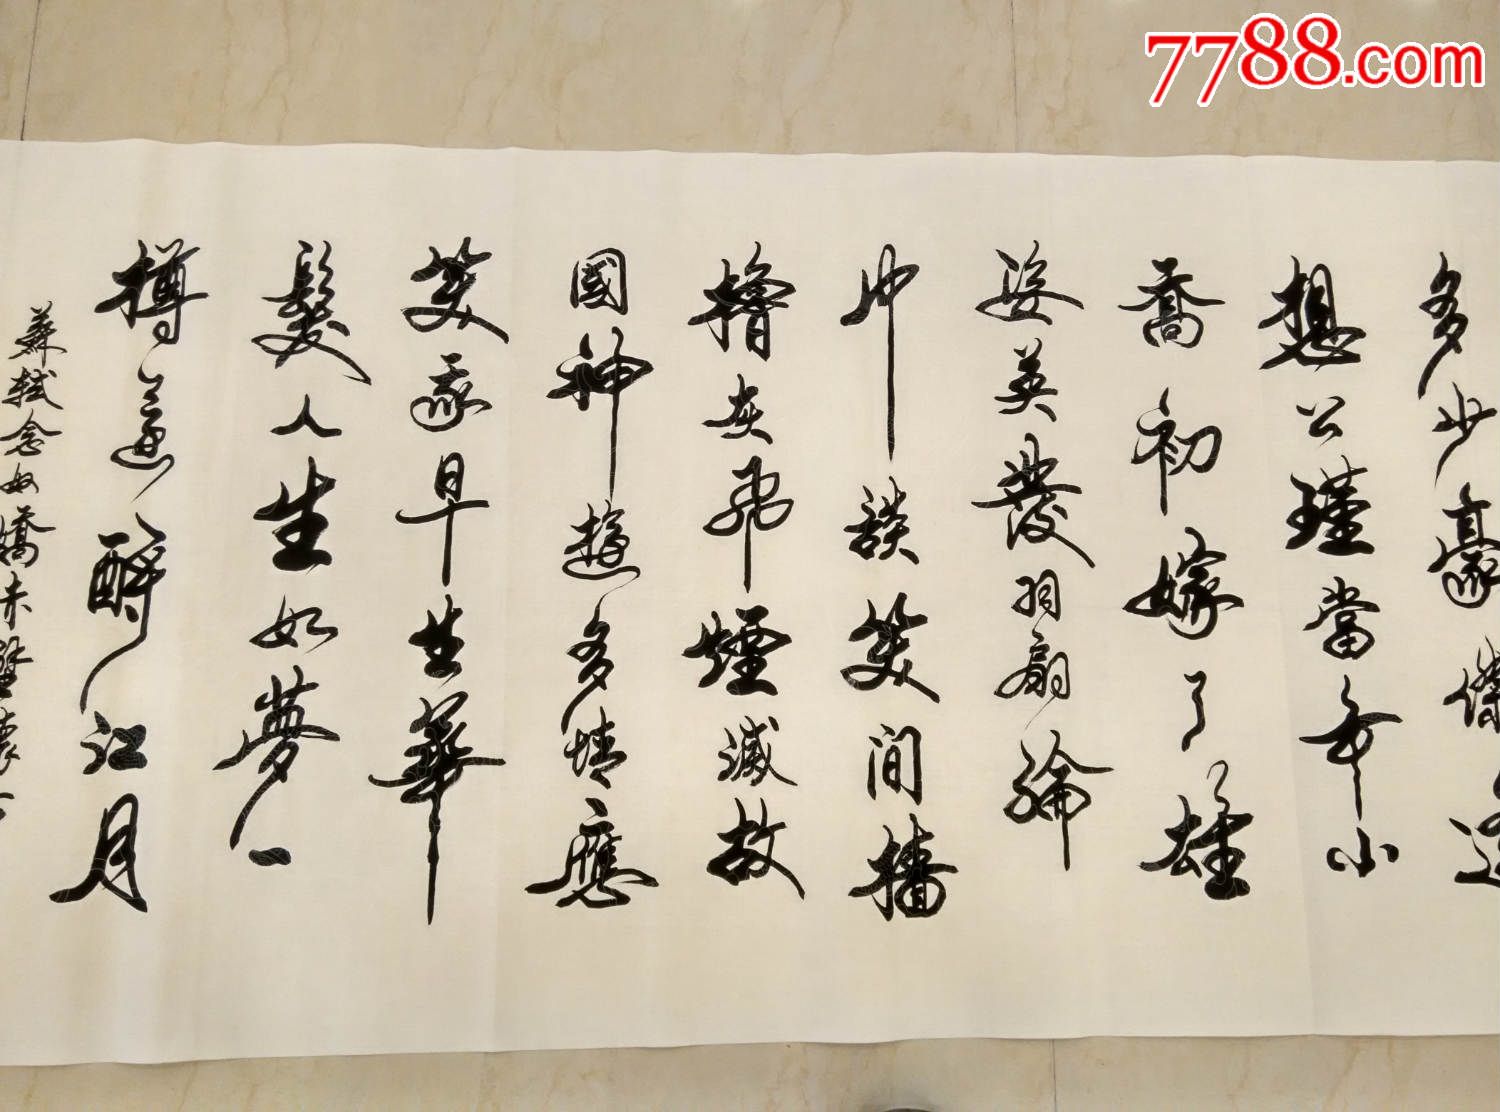 7788.com
多少豪傑遙
想公瑾當年小
喬初嫁了雄
姿英發羽扇綸
巾談笑間檣
櫓灰飛煙滅故
國神遊多情應
笑我早生華
髮人生如夢一
樽還酹江月
蘇軾念奴嬌赤壁懷古